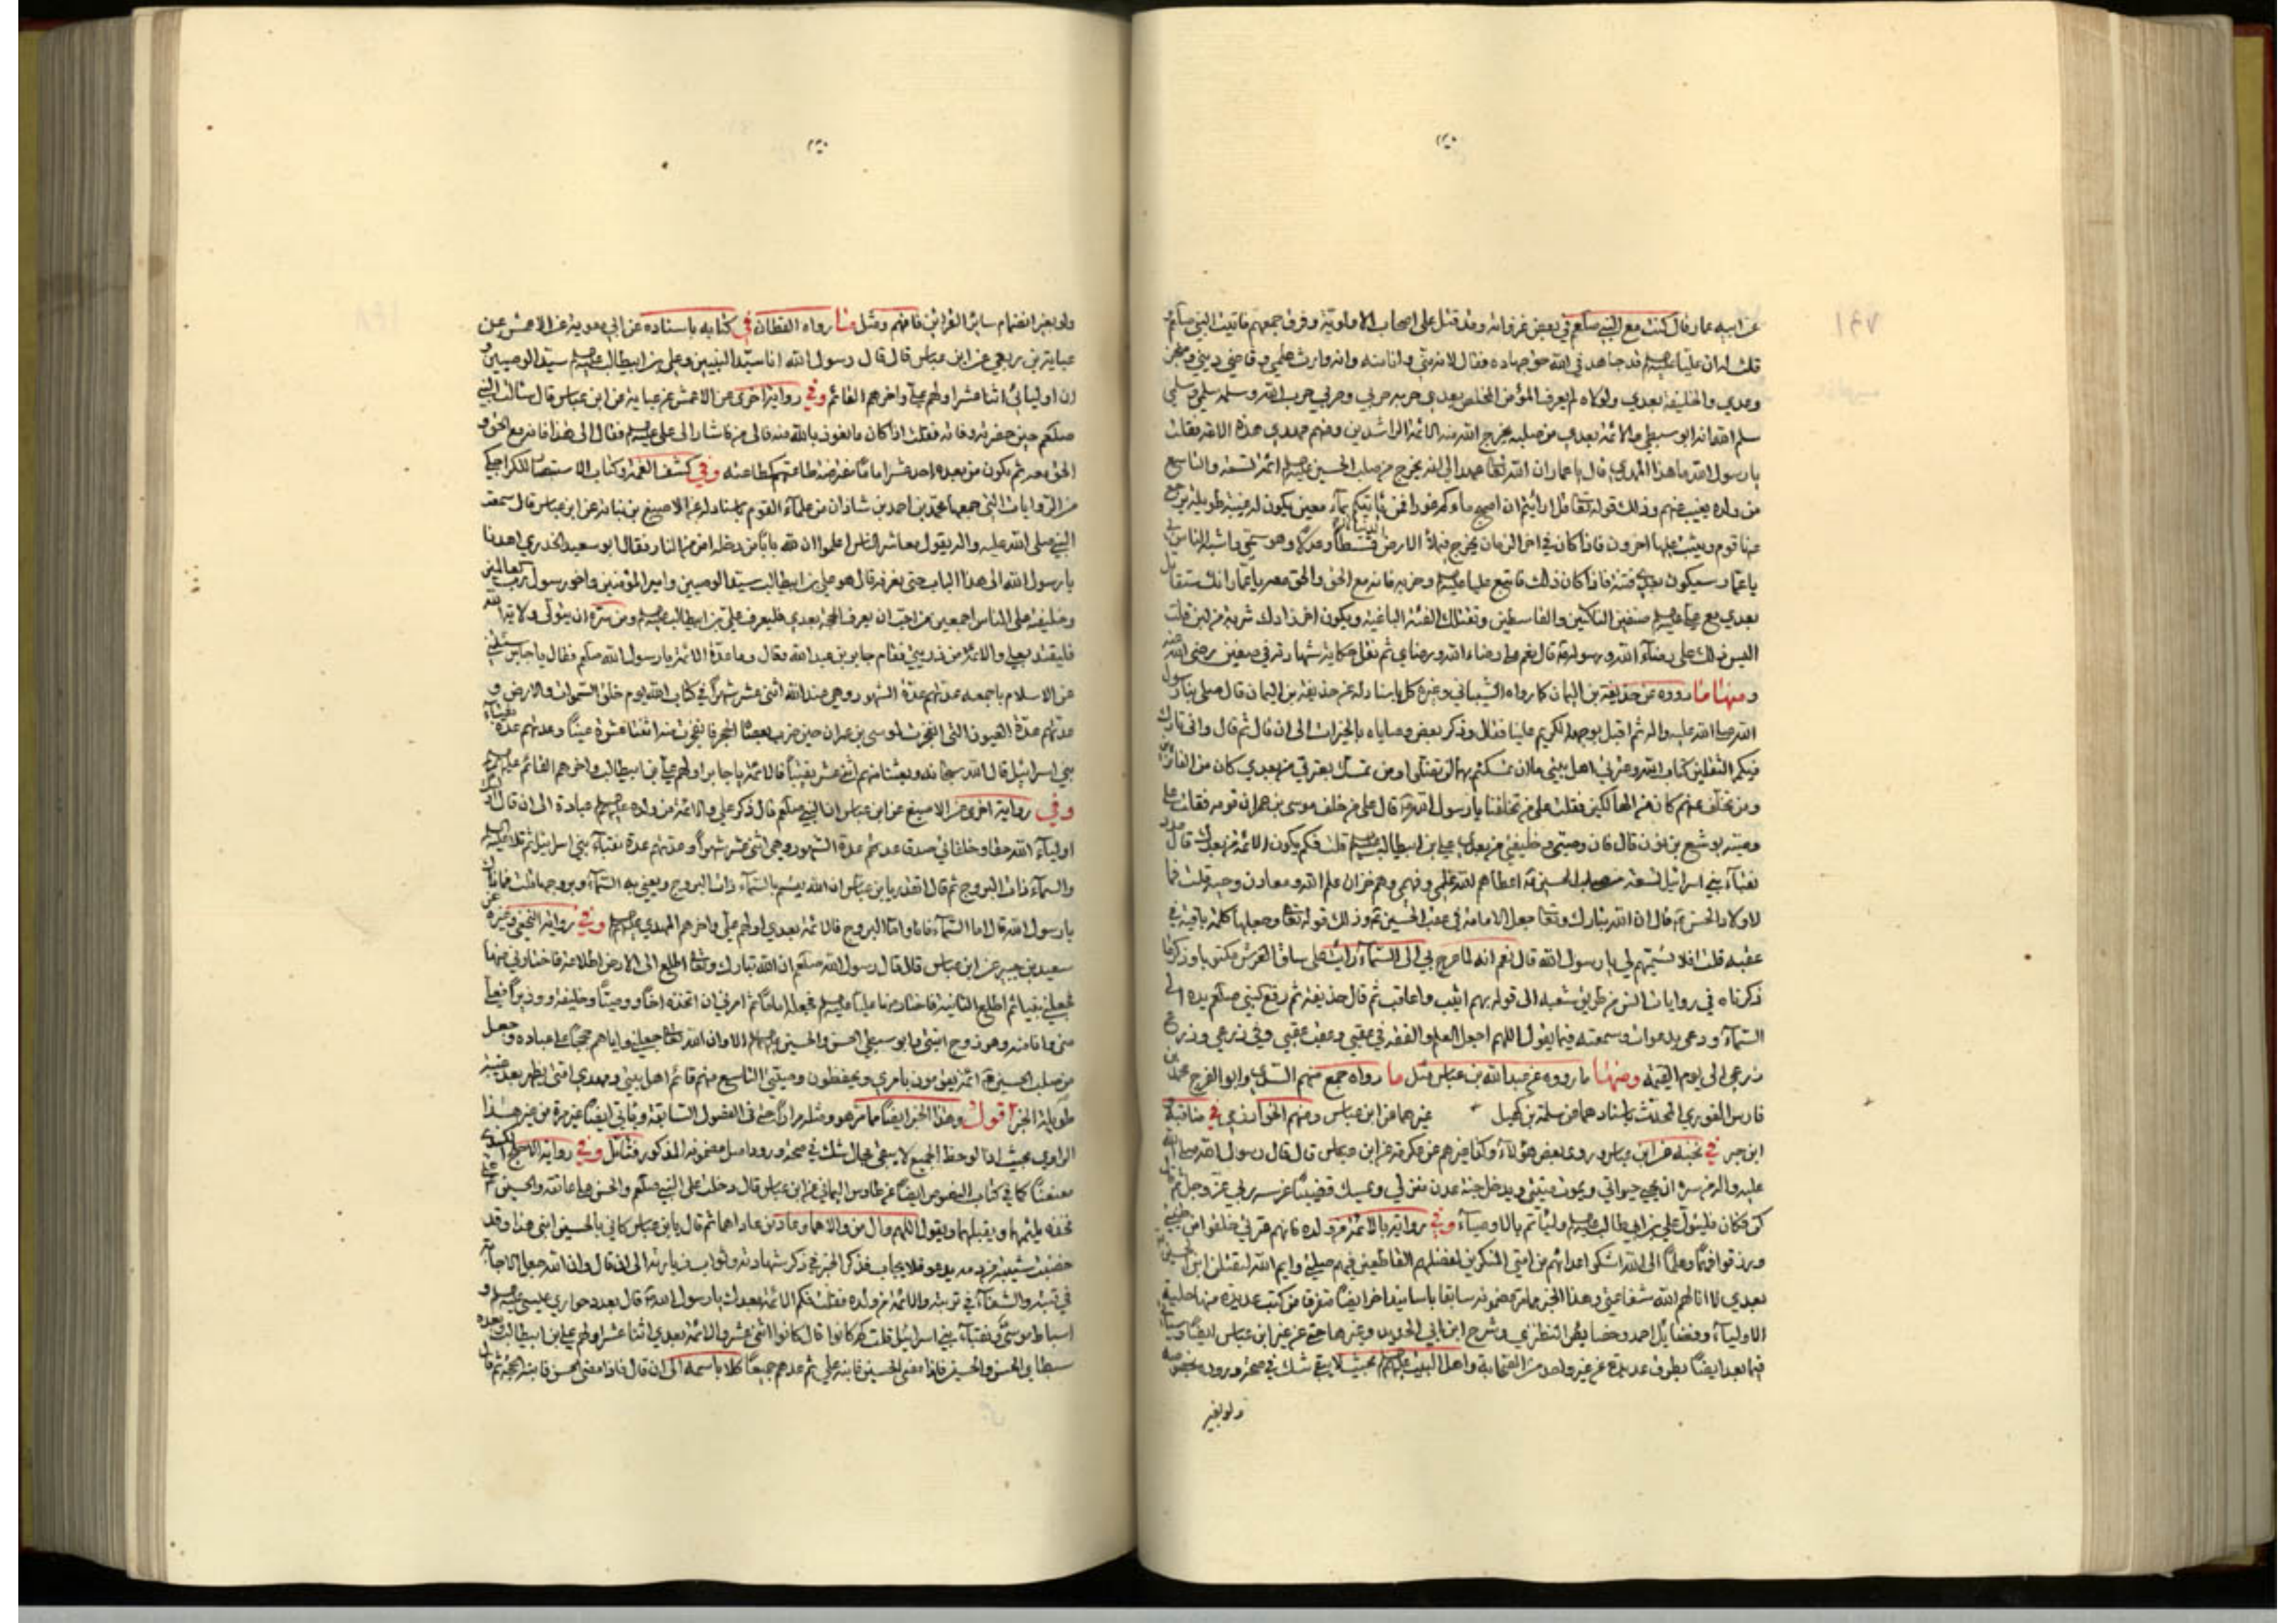 عن ابيه عمار قال كنت مع النبي صلعم في بعض غزواته وقد قتل علي اصحاب الالوية وفرق جمعهم فاتيت النبي صلعم
قلت له ان عليا قد جاهد في الله حق جهاده فقال لانه مني وانا منه وانه وارث علمي وقاضي ديني ومنجز
وعدي والخليفة بعدي ولولاه لم يعرف المؤمن المخلص بعدي حربه حربي وحربي حرب الله وسلمه سلمي وسلمي
سلم الله انه ابو سبطي والائمة بعدي من صلبه يخرج الله منه الائمة الراشدين ومنهم مهدي هذه الامة فقلت
يا رسول الله ما هذا المهدي قال يا عمار ان الله تعالى عهد الي انه يخرج من صلب الحسين ائمة تسعة والتاسع
من ولده يغيب عنهم وذلك قوله تعالى قل ارايتم ان اصبح ماؤكم غورا فمن ياتيكم بماء معين يكون له غيبة طويلة يرجع
عنها قوم ويثبت عليها اخرون فاذا كان في اخر الزمان يخرج فيملأ الارض قسطا وعدلا وهو سميي واشبه الناس بي
يا عمار سيكون بعدي فتنة فاذا كان ذلك فاتبع عليا وحزبه فانه مع الحق والحق معه يا عمار انك ستقاتل
بعدي مع علي صنفين الناكثين والقاسطين وتقتلك الفئة الباغية ويكون اخر زادك شربة من لبن قلت
اليس ذلك على رضاء الله ورسوله قال نعم على رضاء الله ورضاي ثم نقل حكاية شهادته في صفين رضي الله عنه
ومنها ما رووه عن حذيفة بن اليمان كما رواه الشيباني وغيره كل باسناد له عن حذيفة بن اليمان قال صلى بنا رسول
الله صلى الله عليه واله ثم اقبل بوجهه الكريم علينا فقال وذكر بعض وصاياه بالخيرات الى ان قال ثم قال واني تارك
فيكم الثقلين كتاب الله وعترتي اهل بيتي ما ان تمسكتم بهما لن تضلوا ومن تمسك بعترتي من بعدي كان من الفائزين
ومن تخلف عنهم كان من الهالكين فقلت على من تخلفنا يا رسول الله قال على من خلف موسى بن عمران قومه فقلت على
وصيه يوشع بن نون قال فان وصيي وخليفتي من بعدي علي بن ابيطالب قلت فكم يكون الائمة من بعدك قال عدد
نقباء بني اسرائيل تسعة من صلب الحسين اعطاهم الله علمي وفهمي وهم خزان علم الله ومعادن وحيه قلت فما
لاولاد الحسن قال ان الله تبارك وتعالى جعل الامامة في عقب الحسين وذلك قوله تعالى وجعلها كلمة باقية في
عقبه قلت افلا تسميهم لي يا رسول الله قال نعم انه لما عرج بي الى السماء رايت على ساق العرش مكتوبا وذكر ما
ذكرناه في روايات انس من طريق شعبة الى قوله بهم اثيب واعاقب ثم قال حذيفة ثم رفع النبي صلعم يده الى
السماء ودعى بدعوات وسمعته فيما يقول اللهم اجعل العلم والفقه في عقبي وعقب عقبي وفي زرعي وزرع
زرعي الى يوم القيمة ومنها ما رووه عن عبدالله بن عباس مثل ما رواه جمع منهم السدي وابو الفرج محمد بن
فارس الغوري المحدث باسنادهما عن سلمة بن كهيل عن ابن عباس ومنهم الخوارزمي في مناقبه
ابن جبر في نخبه عن ابن عباس وروى بعض هؤلاء وكذا غيرهم عن عكرمة عن ابن عباس قال قال رسول الله صلى الله
عليه واله من سره ان يحيى حيوتي ويموت ميتتي ويدخل جنة عدن منزلي ويمسك قضيبا غرسه ربي عز وجل ثم قال
كن فكان فليتول علي بن ابي طالب وليأتم بالاوصياء وفي رواية بالائمة من ولده فانهم عترتي خلقوا من طينتي
ورزقوا فهما وعلما الى الله اشكو اعدائهم من امتي المنكرين لفضلهم القاطعين فيهم صلتي وايم الله ليقتلن ابني الحسين
بعدي لا انالهم الله شفاعتي وهذا الخبر مما مر مضمونه سابقا باسانيد اخر ايضا متفرقا من كتب عديدة منها حلية
الاولياء وفضائل احمد وخصايص النطنزي وشرح ابن ابي الحديد وغيرها حتى عن غير ابن عباس ايضا وسيأتي
فيما بعد ايضا بطرق عديدة عن غير واحد من الصحابة واهل البيت بحيث لا يبقى شك في صحة وروده بخصوصه
ولو بغير
ولو بغير انضمام ساير القرائن فافهم ومثل ما رواه القطان في كتابه باسناده عن ابي معوية عن الاعمش عن
عباية بن ربعي عن ابن عباس قال قال رسول الله انا سيد النبيين وعلي بن ابيطالب سيد الوصيين و
ان اوليائي اثنا عشر اولهم علي واخرهم القائم وفي رواية اخرى عن الاعمش عن عباية عن ابن عباس قال سالت النبي
صلعم حين حضرته وفاته فقلت اذا كان ما نعوذ بالله منه فالى من فاشار الى علي فقال الى هذا فانه مع الحق و
الحق معه ثم يكون من بعده احد عشر اماما مفترضة طاعتهم كطاعته وفي كشف الغمة وكتاب الاستنصار للكراجكي
من الروايات التي جمعها محمد بن احمد بن شاذان من علماء القوم باسناد له عن الاصبغ بن نباته عن ابن عباس قال سمعت
النبي صلى الله عليه واله يقول معاشر الناس اعلموا ان لله بابا من دخله امن من النار فقال ابو سعيد الخدري اهدنا
يا رسول الله الى هذا الباب حتى نعرفه قال هو علي بن ابيطالب سيد الوصيين وامير المؤمنين واخو رسول رب العالمين
وخليفته على الناس اجمعين من احب ان يعرف الحجة بعدي فليعرف علي بن ابيطالب ومن سره ان يتولى ولاية الله
فليقتد بعلي والائمة من ذريتي فقام جابر بن عبد الله وقال وما عدة الائمة يا رسول الله صلعم فقال يا جابر سئلتني
عن الاسلام باجمعه عدتهم عدة الشهور وهي عند الله اثنى عشر شهرا في كتاب الله يوم خلق السموات والارض و
عدتهم عدة العيون التي انفجرت لموسى بن عمران حين ضرب بعصاه الحجر فانفجرت منه اثنتا عشرة عينا وعدتهم عدة نقباء
بني اسرائيل قال الله سبحانه وبعثنا منهم اثنى عشر نقيبا فالائمة يا جابر اولهم علي بن ابيطالب واخرهم القائم
وفي رواية اخرى عن الاصبغ عن ابن عباس ان النبي صلعم قال ذكر علي والائمة من ولده عبادة الى ان قال
اولياء الله حقا وخلفائي صدقا عدتهم عدة الشهور وهي اثنى عشر شهرا وعدتهم عدة نقباء بني اسرائيل ثم تلا
والسماء ذات البروج ثم قال اتقدر يا بن عباس ان الله يقسم بالسماء ذات البروج ويعني به السماء وبروجها قلت فما ذاك
يا رسول الله قال اما السماء فانا واما البروج فالائمة بعدي اولهم علي واخرهم المهدي وفي رواية النخعي وغيره عن
سعيد بن جبير عن ابن عباس قال قال رسول الله صلعم ان الله تبارك وتعالى اطلع الى الارض اطلاعة فاختارني منها
فجعلني نبيا ثم اطلع الثانية فاختار منها عليا فجعله اماما ثم امرني ان اتخذه اخا ووصيا وخليفة ووزيرا فعلي
مني وانا منه وهو زوج ابنتي وابو سبطي الحسن والحسين الا وان الله جعلني واياهم حججا على عباده وجعل
من صلب الحسين ائمة يقومون بامري ويحفظون وصيتي التاسع منهم قائم اهل بيتي ومهدي امتي يظهر بعد غيبة
طويلة الخبر اقول وهذا الخبر ايضا مما مر هو ومثله مرارا حتى في الفصول السابقة وياتي ايضا غير مرة من غير هذا
الراوي بحيث اذا لوحظ الجميع لا يبقى مجال شك في صحة ورود اصل مضمونه المذكور فتامل وفي رواية
معنعنا كما في كتاب النصوص ايضا عن طاوس اليماني عن ابن عباس قال دخلت على النبي صلعم والحسن على عاتقه والحسين على
فخذه يلثمهما ويقبلهما ويقول اللهم وال من والاهما وعاد من عاداهما ثم قال يا بن عباس كاني بالحسين ابني هذا وقد
خضبت شيبته من دمه يدعو فلا يجاب فذكر الخبر في ذكر شهادته وثواب زيارته الى ان قال وان الله جعل الاجابة
في قبته والشفاء في تربته والائمة من ولده فقلت فكم الائمة بعدك يا رسول الله قال بعدد حواري عيسى و
اسباط موسى ونقباء بني اسرائيل قلت كم كانوا قال كانوا اثنى عشر والائمة بعدي اثنا عشر اولهم علي بن ابيطالب وبعده
سبطاي الحسن والحسين فاذا مضى الحسين فابنه علي ثم عدهم جميعا كلا باسمه الى ان قال فاذا مضى الحسن فابنه الحجة ثم قال